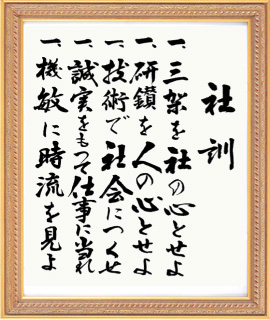 社訓
一、三架を社の心とせよ
一、研鑚を人の心とせよ
一、技術で社会につくせ
一、誠実をもつて仕事に当れ
一、機敏に時流を見よ